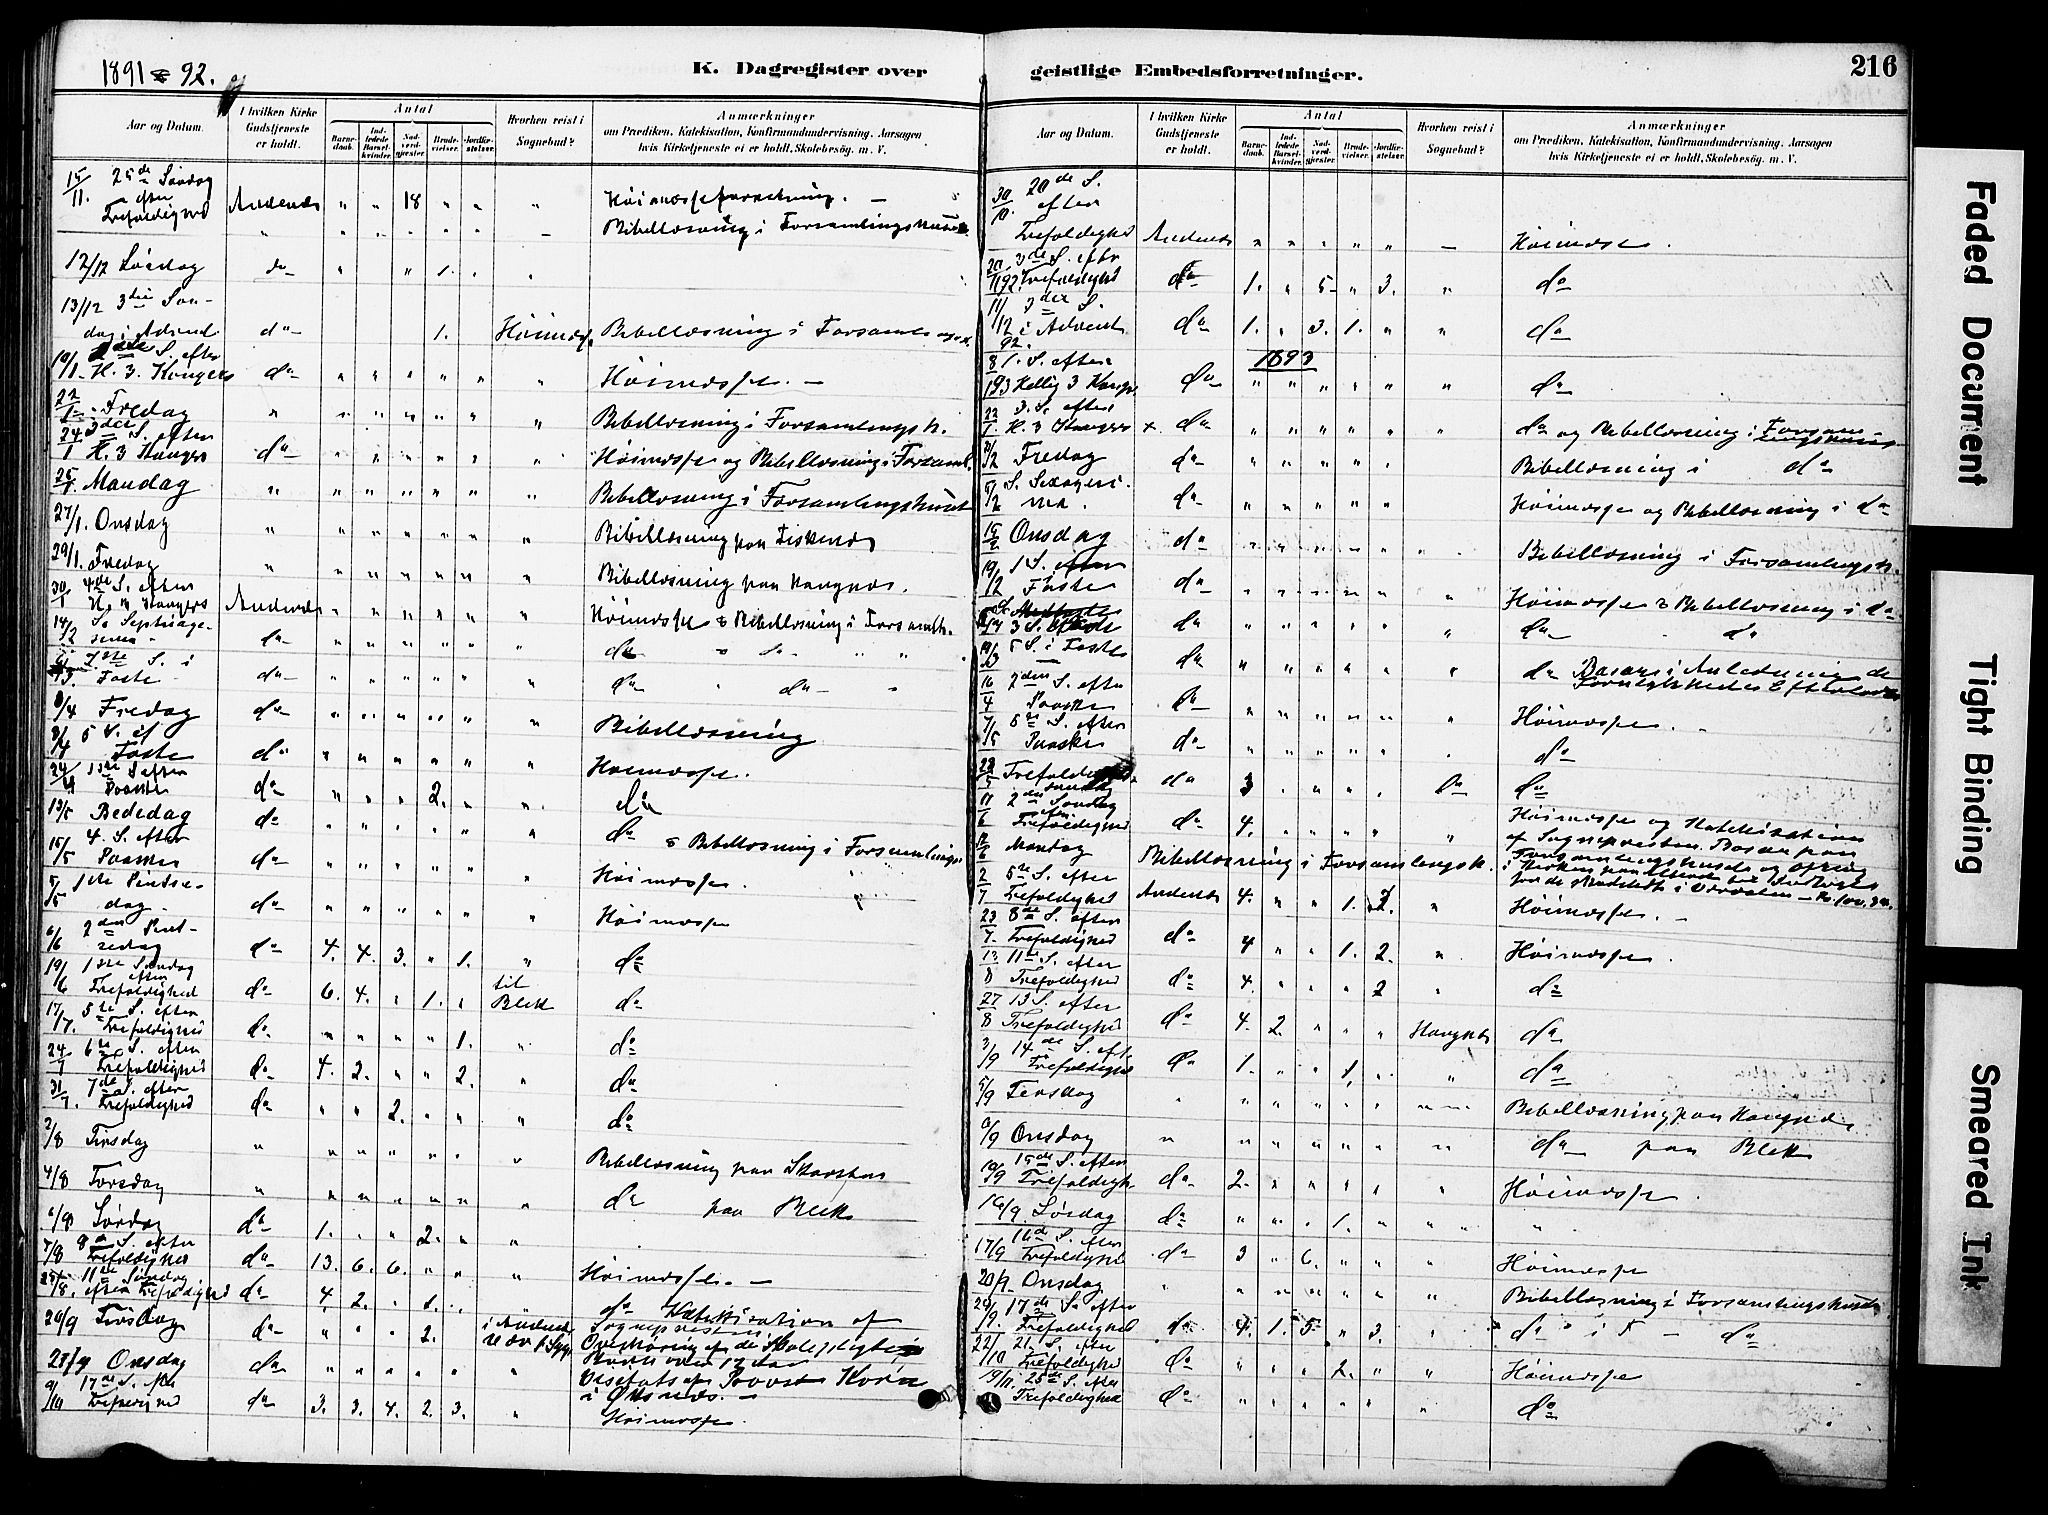 1891 & 92.
K. Dagregister over
Aar og Datum.
I hvilken Kirke Gudstjeneste er holdt.
Antal
Barnedaab.
Indledede Barselkvinder.
Nadverdgjester.
Brudevielser.
Jordfæstelser.
Hvorhen reist i Sognebud?
Anmærkninger
om Prædiken, Katekisation, Konfirmandundervisning, Aarsagen
hvis Kirketjeneste ei er holdt, Skolebesøg. m. V.
15/11. 25de Søndag efter Trefoldighed Andenes " " 18 " " " Høimesse
" " " " " " Bibellæsning i Forsamlingshuset
12/12 Lørdag do " " 1. " "
13/12 3die Søndag i Advend do 1. Høimesse Bibellæsning i
19/1 S. efter H. 3 Kongers do " " " " " " Høimesse. —
22/1 Fredag " " " " " " " Bibellæsning i Forsamlingsh.
24/1 3die S. efter H. 3 Kongers do " " " " " " Høimesse og Bibellæsning i Forsaml.
25/1 Mandag " " " " " " " Bibellæsning i Forsamlingshuset
27/1. Onsdag " " " " " " " Bibellæsning paa Fiskenes
29/1. Fredag " " " " " " " Bibellæsning paa Haugnes.
30/1 4de S. efter H. 3 Kongers Andenes " " " " " " Høimesse & Bibellæsning i Forsamlh.
14/2 S. Septuagesema do " " " " " do
1ste S. i Faste do " " " " " " do " do "
8/4 Fredag do " " " " " " Bibellæsning
5 S. i Faste do " " " " " " Høimesse.
24/4 1ste S. efter Paaske do " " " 2. " " do
13/5 Bededag do " " " " " " do & Bibellæsning i Forsamlings
15/5 4 S. efter Paaske do " " " " " " Høimesse.
5/6 1ste Pintsedag do " " " " " " Høimesse
6/6 2den Pintsedag do 4. 4. 3. " 1. " do
19/6 1ste Søndag efter Trefoldighed do 6. 4. " 1. " til Blek do
17/7. 5te S. efter Trefoldighed do " " " " 1. " do
24/7 6te S. efter Trefoldighed do 4. 2. " " 2. " do
31/7. 7de S. efter Trefoldighed do " " 2. " " " do
2/8 Tirsdag " " " " " " " Bibellæsning paa Skarsten
4/8 Torsdag " " " " " " " do paa Blek
6/8 Lørdag do 1. " " 2. " "
7/8 8de S. efter Trefoldighed do 13. 6. 6. " " " Høimesse. —
11te Søndag efter Trefoldighed do 4. 2. " 1. " " do Katekisation af Sognepresten.
20/9 Tirsdag do " " " 2. i Andenes Overhøring af de Skolepligtige Børn over 12 Aar
28/9 Onsdag do " " " " " " Visitats af Provst i Øksnes. —
9/10 17de S. efter Trefoldighed do 3. 3. 4. 2. 3. " Høimesse.
geistlige Embedsforretninger.
216
Aar og Datum.
I hvilken Kirke Gudstjeneste er holdt.
Antal
Barnedaab.
Indledede Barselkvinder.
Nadverdgjester.
Brudevielser.
Jordfæstelser.
Hvorhen reist i Sognebud?
Anmærkninger
om Prædiken, Katekisation, Konfirmandundervisning, Aarsagen
hvis Kirketjeneste ei er holdt, Skolebesøg. m. V.
30/10. 20de S. efter Trefoldighed Andenes " " " " " — Høimesse.
20/11 92. S. eftr Trefoldighed do 1. " 5 " 3. " do
11/12 92. 3die S. i Advent do 1. " 3. 1. " " do
1893
8/1 93 1. S. efter Hellig 3 Konger do " " " " " " do
22/1. 3. S. efter H. 3 Kongers do " " " " " " do og Bibellæsning i Forsamlingshuset
3/2 Fredag do " " " " " Bibellæsning i do
5/2 S. Sexagesima. do " " " " " Høimesse og Bibellæsning i do
15/2 Onsdag do " " " " " " Bibellæsning i Forsamlingsh.
19/2 1 S. Faste do " " " " " Høimesse & Bibellæsning i do
3 S. do " " " " " " do do
19/3 5 S. i Faste do " " " " " " do Basar i Anledning
16/4 2den S. efter Paaske do " " " " " " Høimesse.
7/5 5te S. efter Paaske do " " " " " " do
28/5 Trefoldigheds søndag do 3 " " " " do do
11/6 2den Søndag efter Trefoldighed do 4. " " " " Høimesse og Katekisation af Sognepresten. Basar paa
12/6 Mandag Bibellæsning i Forsamlingsh. Forsamlingshuset og Ofring i Kirken
2/7 5te S. efter Trefoldighed Andenes 4. " " 1. 2. " Høimesse. —
23/7. 8de S. efter Trefoldighed do 4 " " 1 2. " Høimesse.
13/8 11te S. efter Trefoldighed do 4. " " " 2 " do
27/8 13 S. efter Trefoldighed do 4. 2. " " " Haugnes do
3/9 14de S. eft. Trefoldighed do 1. " " 1. " " do
5/9 Tirsdag " " " " " " " Bibellæsning paa Haugnes
6/9 Onsdag " " " " " " " do paa Blek
10/9 15de S. efter Trefoldigh. do 2. " " " " " Høimesse.
16/9 Lørdag do " " " 1. " " "
17/9 16de S. efter Trefoldighed do 3 " 6. " " " Høimesse
20/9. Onsdag " " " " " " " Bibellæsning i Forsamlingshuset
17de S. efter Trefoldighed do 4. 1. 5 " 3. " do i F — do
22/10 21. S. efter Trefoldighed do " " " 2. " " Høimesse
19/11. 25de S. efter Trefoldighed do " " " " " " do
Faded Document
Tight Binding
Smeared Ink